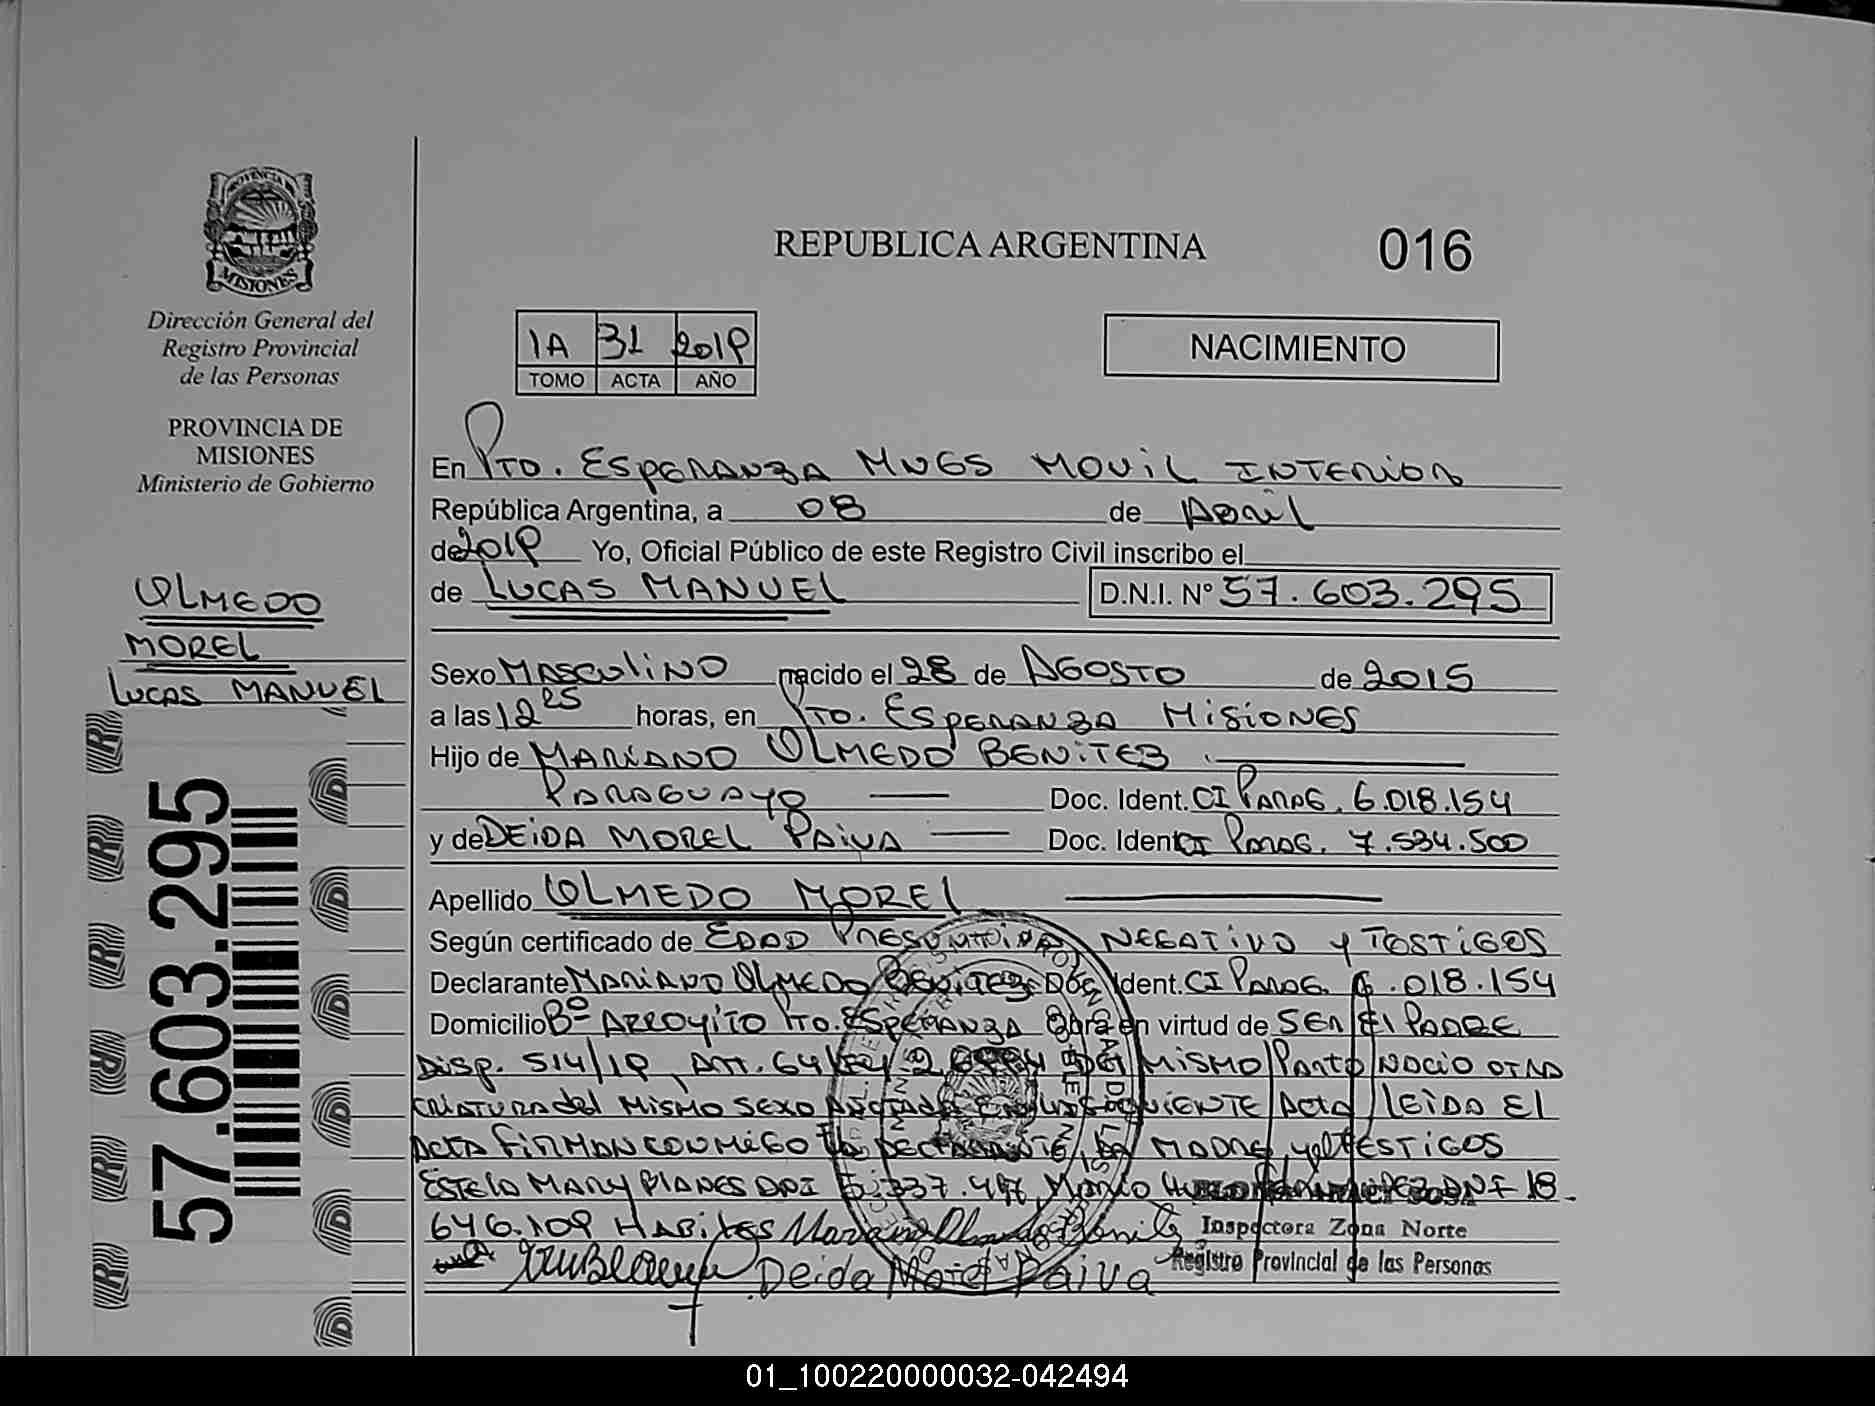 PROVINCIA DE
MISIONES
Dirección General del
Registro Provincial
de las Personas
PROVINCIA DE
MISIONES
Ministerio de Gobierno
OLMEDO
MOREL
LUCAS MANUEL
57.603.295
REPUBLICA ARGENTINA 016
1A 31 2019
TOMO ACTA AÑO
NACIMIENTO
En Pto. ESPERANZA MNGS MOVIL INTERIOR
República Argentina, a 08 de Abril
de 2019 Yo, Oficial Público de este Registro Civil inscribo el
de LUCAS MANUEL D.N.I. Nº 57.603.295
Sexo MASCULINO nacido el 28 de AGOSTO de 2015
a las 12 25 horas, en Pto. ESPERANZA MISIONES
Hijo de MARIANO OLMEDO BENITEZ
PARAGUAYO Doc. Ident. CI PARAG. 6.018.154
y de DEIDA MOREL PAIVA Doc. Ident. CI PARAG. 7.534.500
Apellido OLMEDO MOREL
Según certificado de EDAD PRESUNTIVA, NEGATIVO y TESTIGOS
Declarante MARIANO OLMEDO BENITEZ Doc. Ident. CI PARAG. 6.018.154
Domicilio Bº ARROYITO Pto. ESPERANZA Obra en virtud de SER El PADRE
Disp. 514/19, Art. 64 DEL MISMO Parto NACIO OTRA
CRIATURA del MISMO SEXO ANOTADA EN LA SIGUIENTE Acta LEIDA El
ACTA FIRMAN CONMIGO EL DECLARANTE, LA MADRE, y TESTIGOS
ESTELA MARY BLANES DNI 5.337.497, DNI 18.
646.109 HABILES Mariano Olmedo Benitez Inspectora Zona Norte
Deida Morel Paiva Registro Provincial de las Personas
01_100220000032-042494